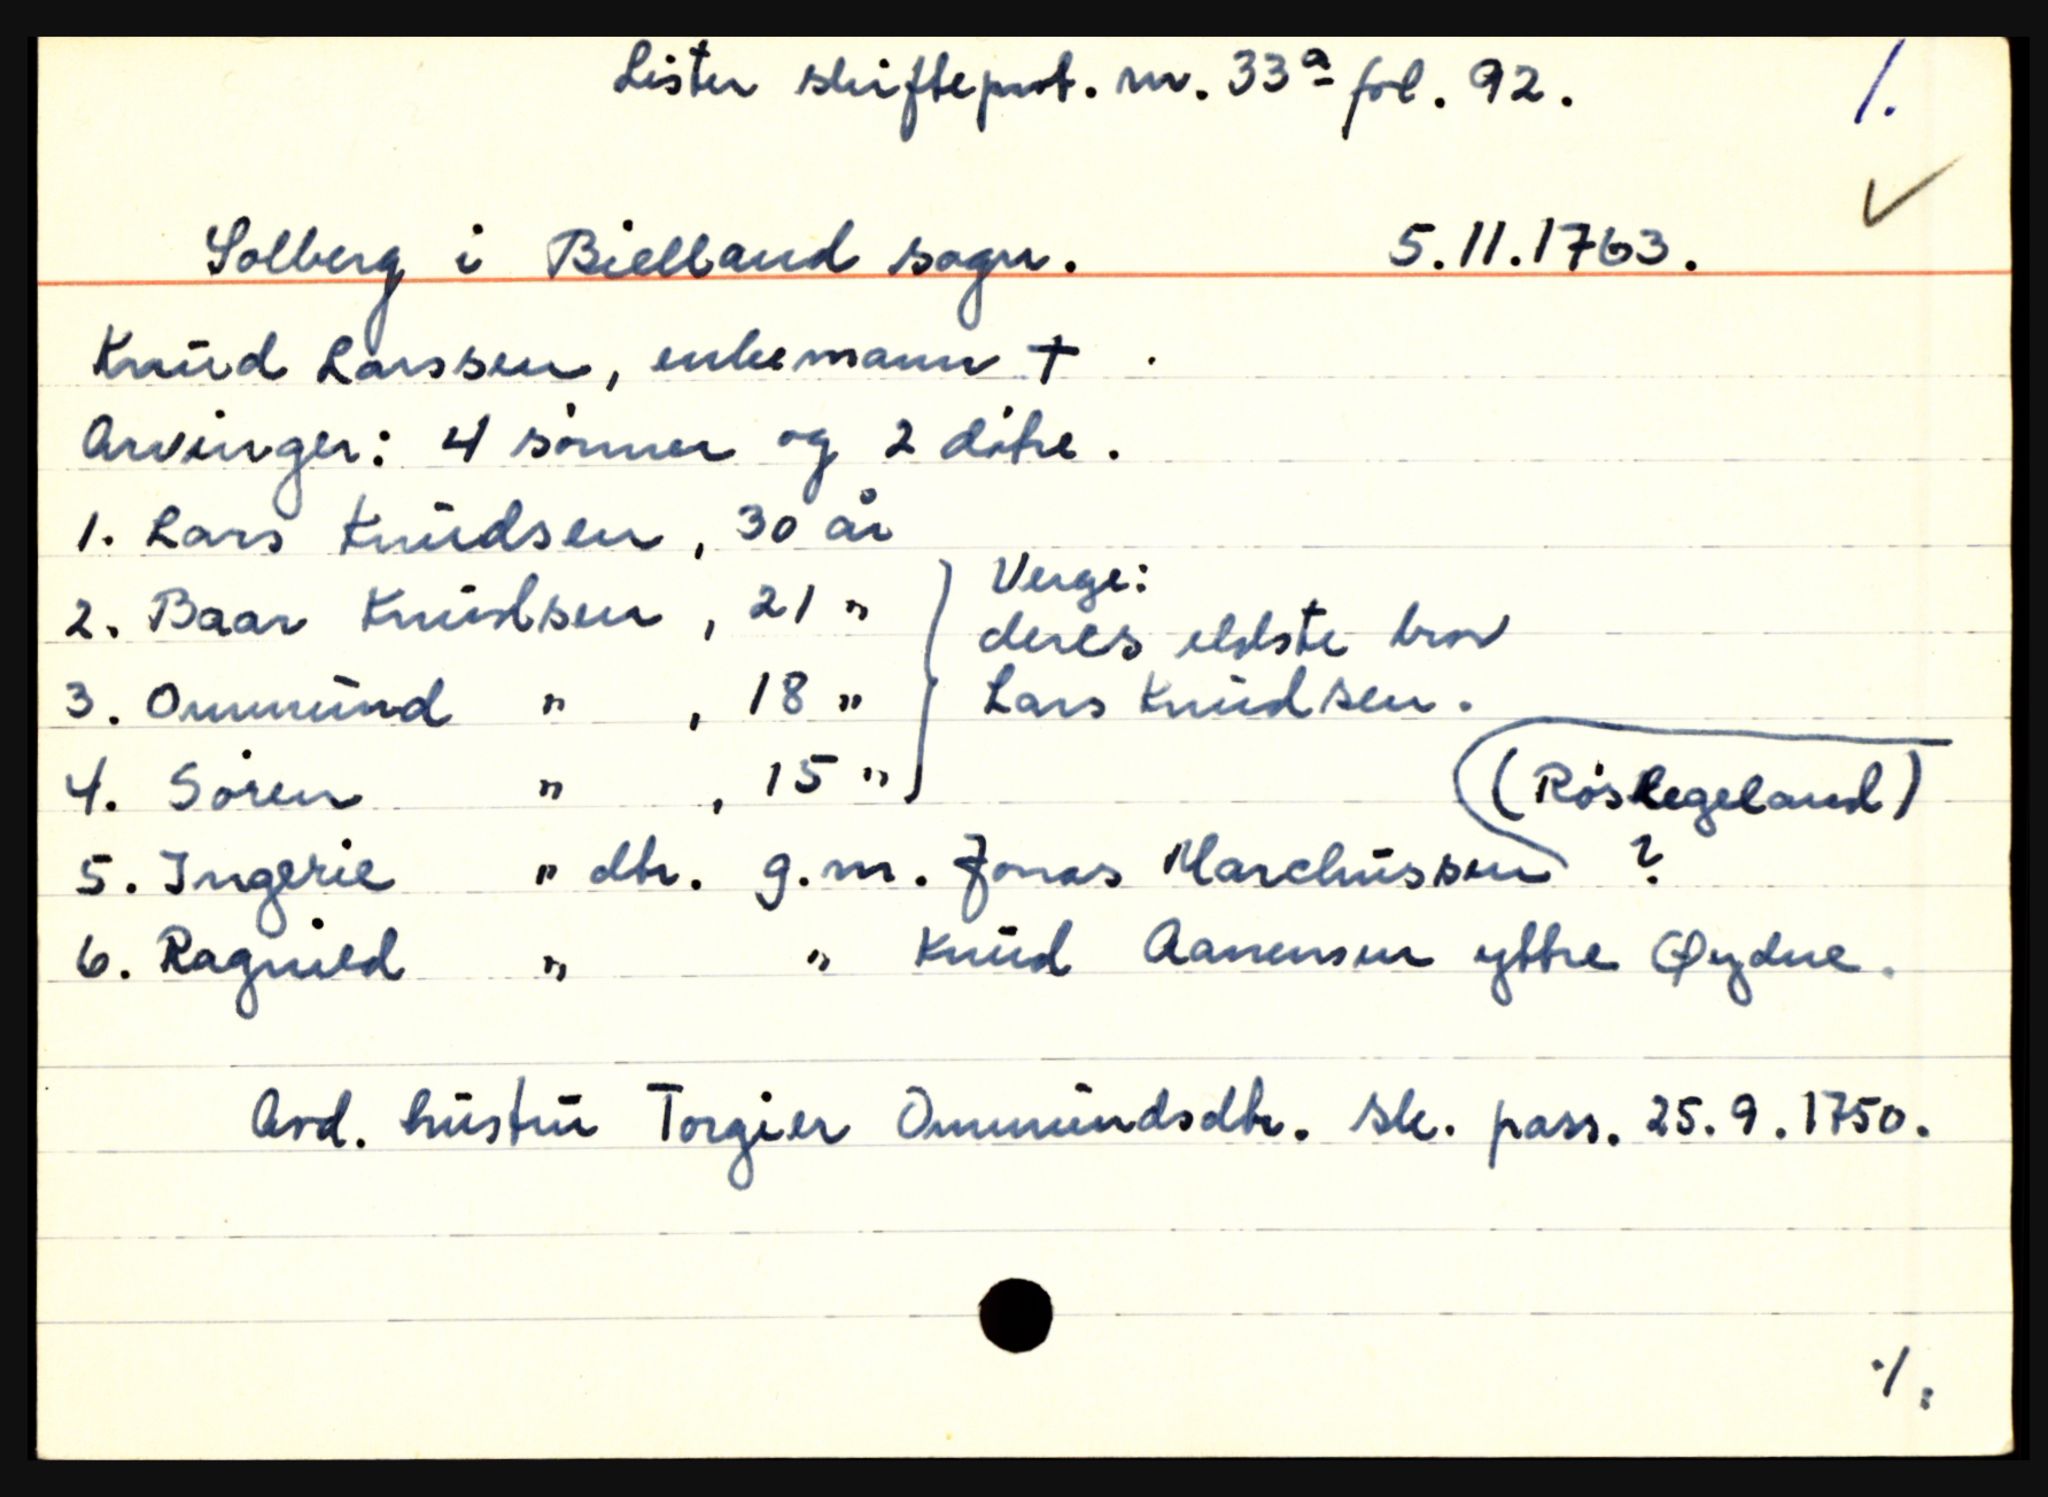 Lister skifteprot. nr. 33a fol. 92. 1.
Solberg i Bielland sogn. 5.11.1763.
Knud Larssen, enkemann †
Arvinger: 4 sønner og 2 døtre.
1. Lars Knudsen, 30 år
2. Baar Knudsen, 21 "
3. Ommund " , 18 "
4. Søren " , 15 "
Verge:
deres eldste bror
Lars Knudsen.
(Røslegeland)
5. Ingerie " dtr. g.m. Jonas Marchussen ?
6. Ragnild " " Knud Aanensen yttre Øydne.
Avd. hustru Torgier Ommundsdtr. sk. pass. 25.9.1750.
./: